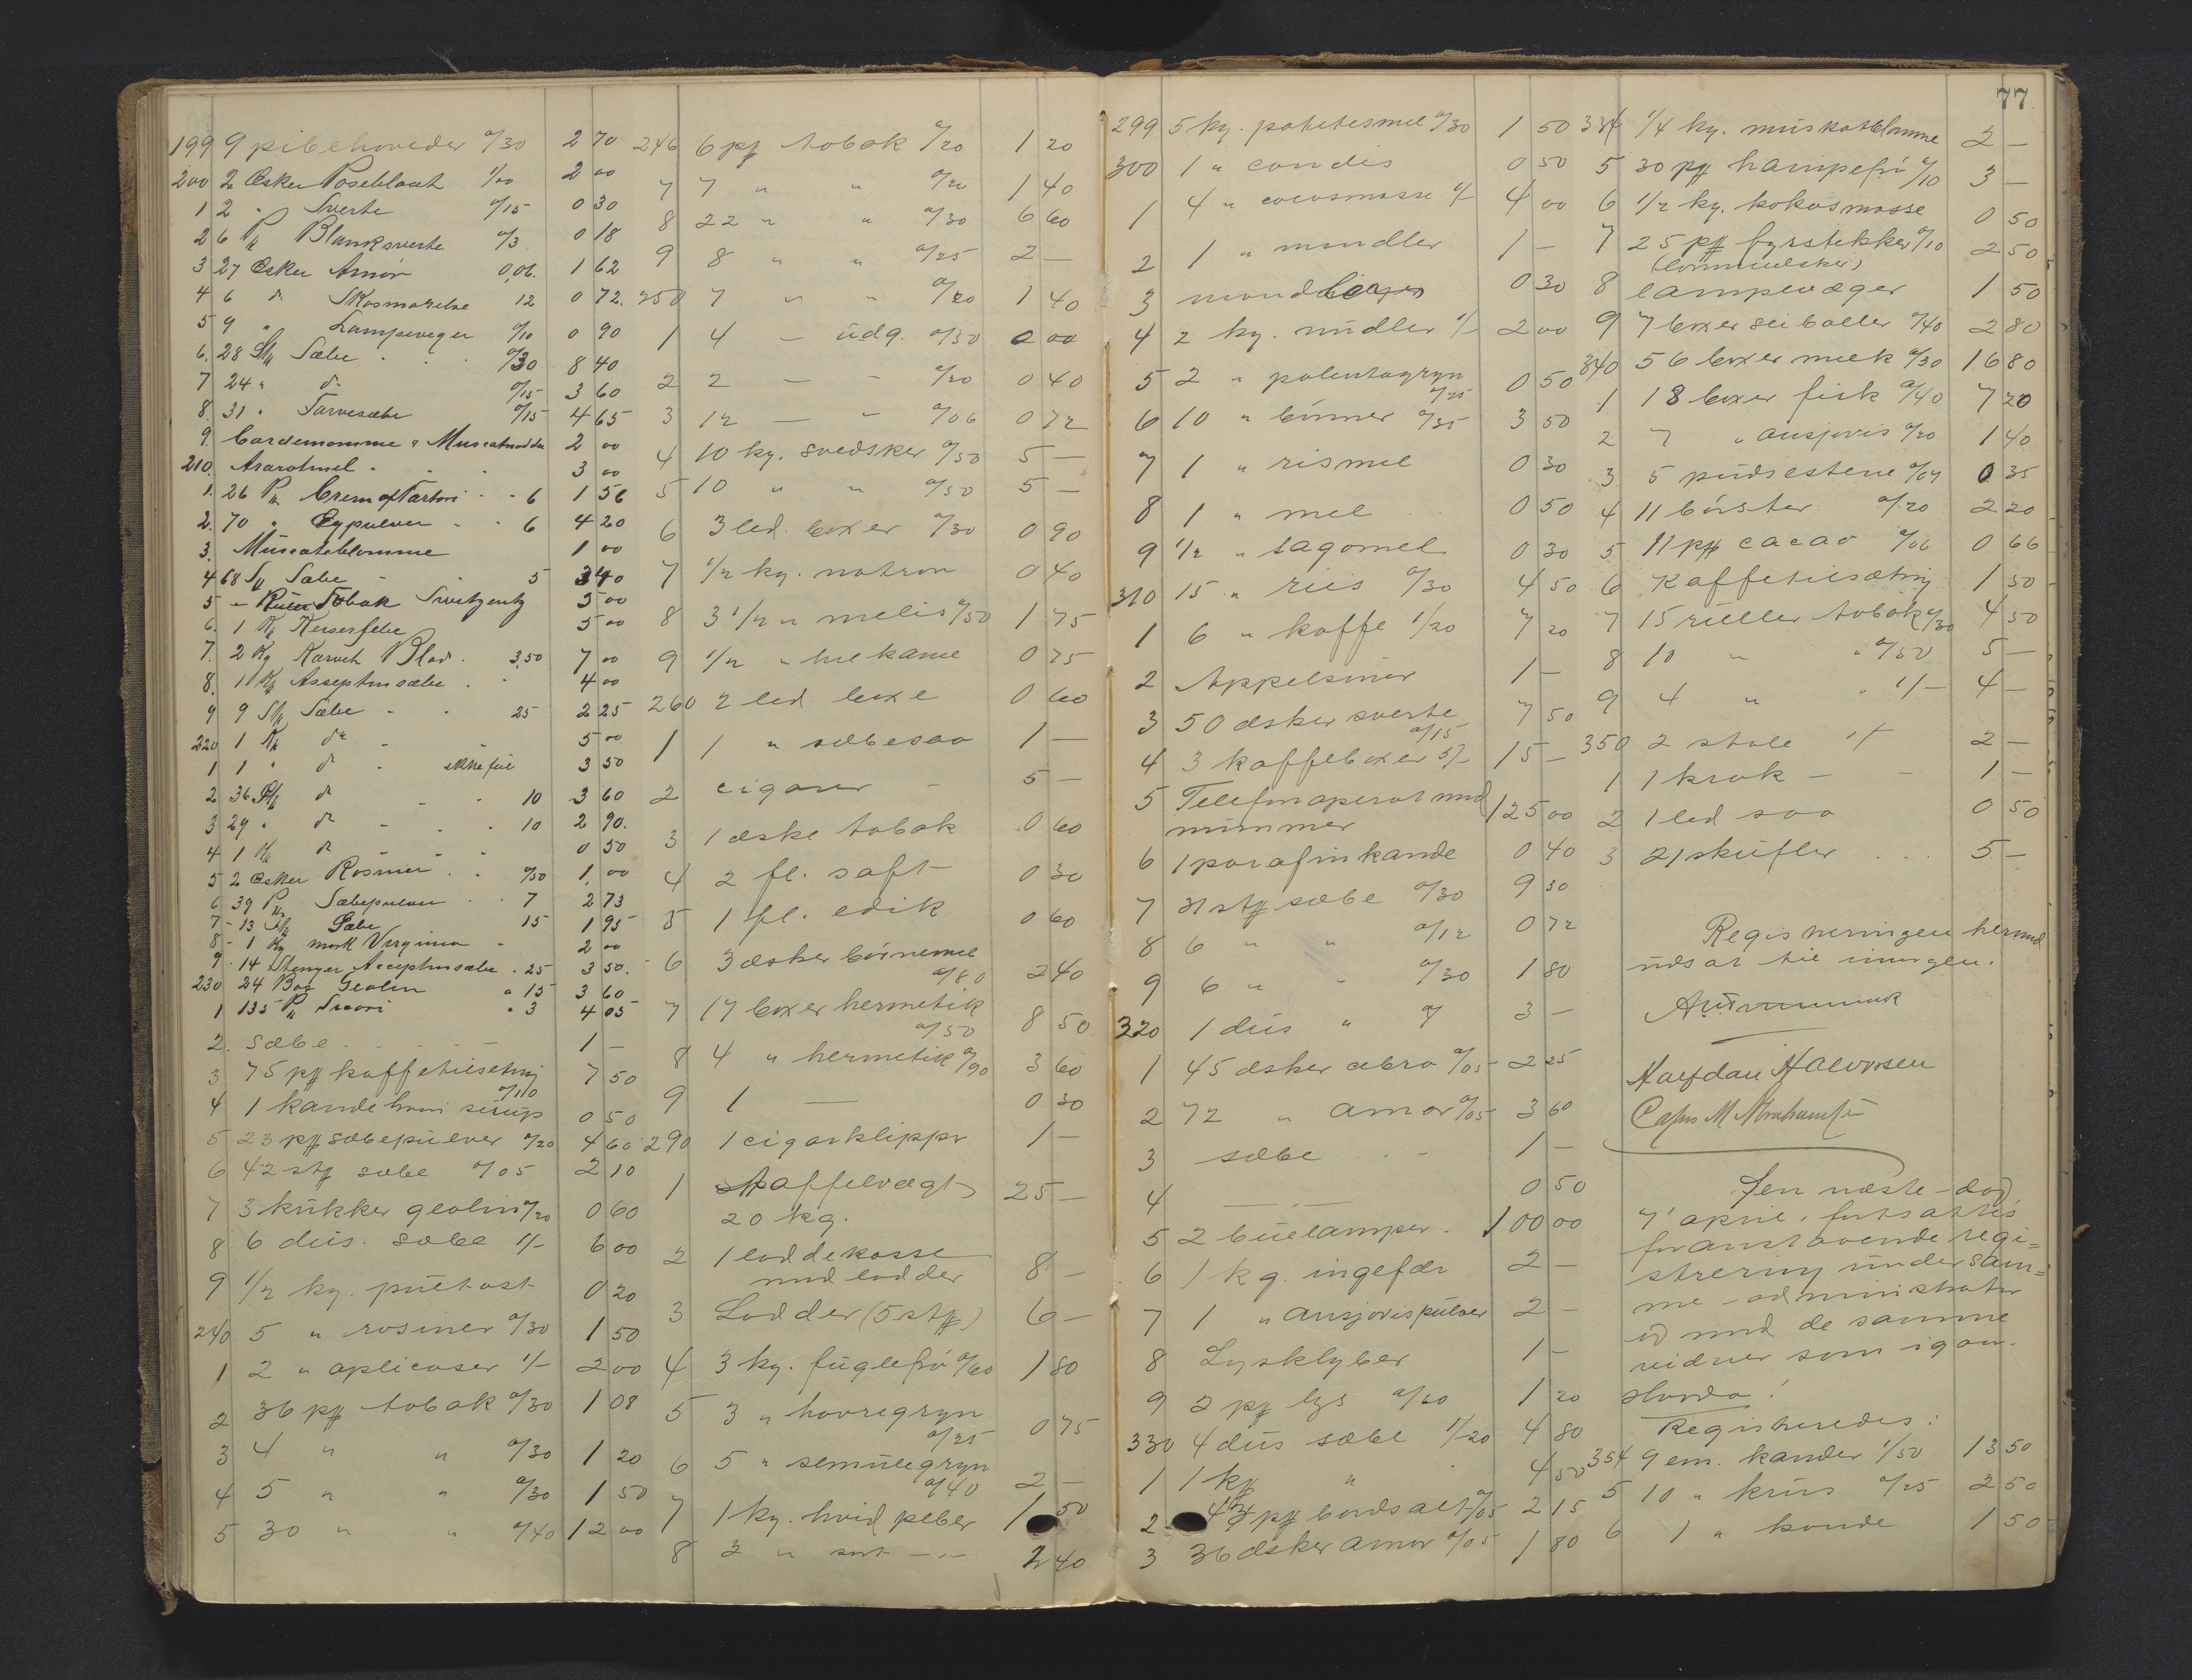 199 9 pibehoveder a/30 2 70
200 2 Æsker Poseblaat 1/00 2 00
1 2 " Sverte a/15 0 30
2 6 Pk Blanksverte a/3 0 18
3 27 Æsker Amor 0,06. 1 62
4 6 do Skosmørelse 12 0 72.
5 9 " Lampeveger a/10 0 90
6. 28 Stk Sæbe a/30 8 40
7 24 " do a/15 3 60
8. 31 " Tarvesæbe a/15 4 65
9. Cardemomme & Muscatnødder 2 00
210. Ararotmel 3 00
1. 26 Pk Crem of Tartari - - 6 1 56
2. 70 " Eypulver - - 6 4 20
3. Muscatblomme 1 00
4 68 Stk Sæbe 5 3 40
5 - Tobak 5 00
6. 1 Ks 5 00
7. 2 Kg Karvet Blad. 3,50 7 00
8. 1 Ks Asseptinsæbe 4 00
9 9 Stk Sæbe - - 25 2 25
220 1 Ks do 5 00
1 1 " do - ikke fuld 3 50
2 36 Stk do - - 10 3 60
3 29 " do - - 10 2 90.
4 1 Ks do 0 50
5 2 Æsker Rosiner a/50 1,00
6 39 Pk Sæbepulver - 7 2 73
7 - 13 Stk Sæbe 15 1 95
8 - 1 Kg mørk Virginia - 2 00
9 - 14 Stenger Aceptinsæbe - 25 3 50.
230 24 Box Geolin a 15 3 60
1 135 Pk " 3 4 05
2. Sæbe 1 -
3 75 pk kaffetilsetnig a/10 7 50
4 1 kande hvori sirup 0 50
5 23 pk sæbepulver a/20 4 60
6 42 stk sæbe a/05 2 10
7 3 krukker geolin a/20 0 60
8 6 dus. sæbe 1/- 6 00
9 1/2 kg. pultost 0 20
240 5 " rosiner a/30 1 50
1 2 " aplicoser 1/- 2 00
2 36 pk tobak a/30 1 08
3 4 " " a/30 1 20
4 5 " " a/30 1 50
5 30 " " a/40 12 00
246 6 pk tobak a/20 1 20
7 7 " " a/20 1 40
8 22 " " a/30 6 60
9 8 " " a/25 2 -
250 7 " " a/20 1 40
1 4 - udg. a/50 2 00
2 2 - - a/20 0 40
3 12 - - a/06 0 72
4 10 kg. svedsker a/50 5 -
5 10 " " a/50 5 -
6 3 led. boxer a/30 0 90
7 1/2 kg. natron 0 40
8 3 1/2 " melis a/50 1 75
9 1/2 " hel kanel 0 75
260 2 led boxe 0 60
1 1 " sæbesaa 1 -
2 cigarer - 5 -
3 1 æske tobak 0 60
4 2 fl. saft 0 30
5 1 fl. edik 0 60
6 3 æsker børnemel a/80 2 40
7 17 boxer hermetik a/50 8 50
8 4 " hermetik a/90 3 60
9 1 - 0 30
290 1 cigarklipper 1 -
1 skaffelvægt 25 -
20 kg.
2 1 loddekasse
med lodder 8 -
3 Lodder (5 stk) 6 -
4 3 kg. fuglefrø a/60 1 80
5 3 " havregryn a/25 0 75
6 5 " semulegryn a/40 2 -
7 1 kg. hvid peber 1 50
8 2 " sort - - 2 40
77
299 5 kg. potetesmel a/30 1 50
300 1 " candis 0 50
1 4 " cocosmasse 1/- 4 00
2 1 " mandler 1 -
3 0 30
4 2 kg. nudler 1/- 2 00
5 2 " polentagryn a/25 0 50
6 10 " bønner a/35 3 50
7 1 " rismel 0 30
8 1 " mel 0 50
9 1/2 " sagomel 0 30
310 15 " riis a/30 4 50
1 6 " kaffe 1/20 7 20
2 Appelsiner 1 -
3 50 æsker sverte a/15 7 50
4 3 kaffeboxer 5/- 15 -
5 Telefonaperat med
nummer 125 00
6 1 parafinkande 0 40
7 31 stk sæbe a/30 9 30
8 6 " " a/12 0 72
9 6 " " a/30 1 80
320 1 dus " a/ 3 -
1 45 æsker æbra a/05 2 25
2 72 " amor a/05 3 60
3 sæbe - - 1 -
4 - - 0 50
5 2 buelamper - 100 00
6 1 kg. ingefær 2 -
7 1 " ansjovispulver 2 -
8 Lysklyber 1 -
9 2 pk lys a/60 1 20
330 4 dus sæbe 1/20 4 80
1 1 ks " 4 50
2 43 pk bordsalt a/05 2 15
3 36 æsker amor a/05 1 80
334 1/4 kg. muskatblomme 2 -
5 30 pk hampefrø a/10 3 -
6 1/2 kg. kokosmasse 0 50
7 25 pk fyrstekker a/10 2 50
(lommeæsker)
8 lampevæger 1 50
9 7 boxer seiboller a/40 2 80
340 56 boxer melk a/30 16 80
1 18 boxer fisk a/40 7 20
2 7 " ansjovis a/20 1 40
3 5 pudsestene a/07 0 35
4 11 børster a/20 2 20
5 11 pk cacao a/06 0 66
6 Kaffetilsætnig 1 50
7 15 ruller tobak a/30 4 50
8 10 " " a/50 5 -
9 4 " " 1/- 4 -
350 2 stole 1/- 2 -
1 1 krak - - 1 -
2 1 led saa 0 50
3 21 skufler 5 -
Registreringen hermed
udsat til imorgen.
Halfdan Halvorsen
Casps M Abrahamsen
Den næste dag,
7' april, fortsattes
foranstaaende regi=
strering under sam=
me administrator
og med de samme
vidner som igaar.
Hvorda!
Registreredes:
354 9 em. kander 1/50 13 50
5 10 " krus a/25 2 50
6 1 " kande 1 50